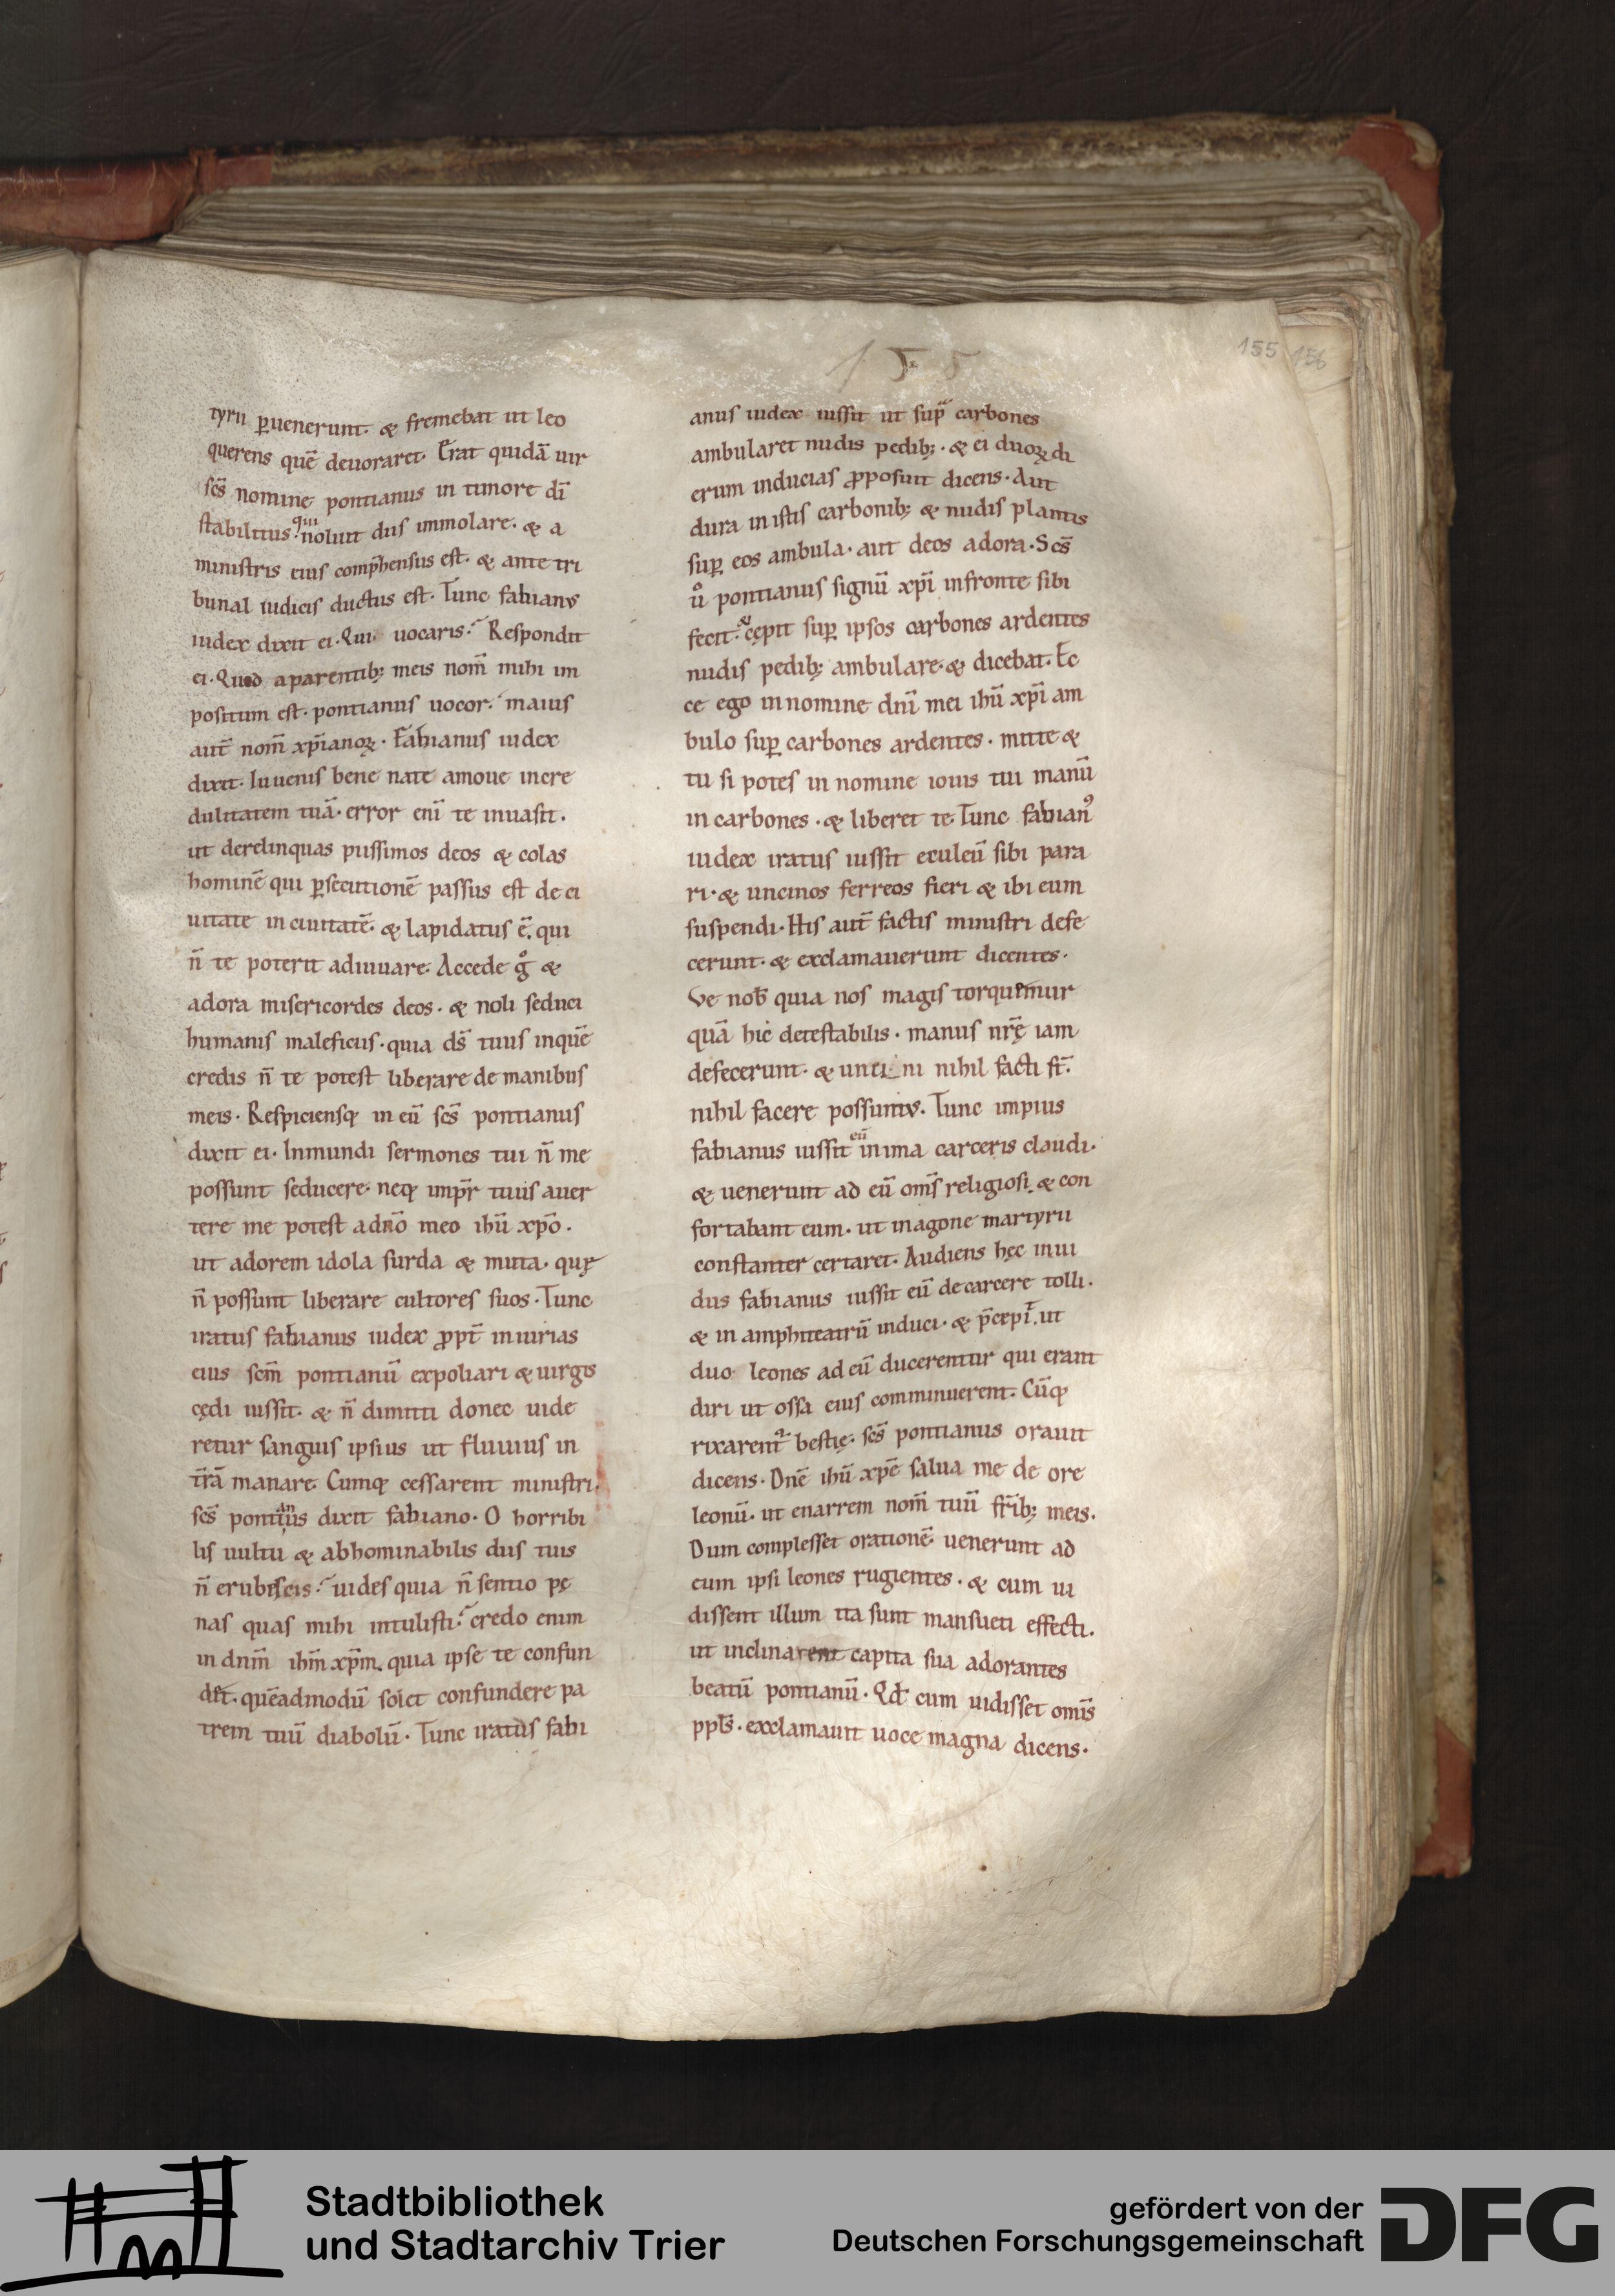 155
155 156
tyrii ꝑuenerunt. & fremebat ut leo
querens quē deuoraret. Erat quidā uir
scs̄ nomine pontianus in timore dī
stabilitus. qui noluit diis immolare. & a
ministris eius comp̄hensus est. & ante tri
bunal iudicis ductus est. Tunc fabianus
iudex dixit ei. Qui uocaris? Respondit
ei. Quod a parentib; meis nom̄ mihi im
positum est. pontianus uocor. maius
aut̄ nom̄ xp̄ianoꝝ. Fabianus iudex
dixit. Iuuenis bene nate amoue incre
dulitatem tuā. error eni̅ te inuasit.
ut derelinquas piissimos deos & colas
hominē qui ꝑsecutionē passus est de ci
uitate in ciuitatē. & lapidatus ē. qui
n̄ te poterit adiuuare. Accede gͦ &
adora misericordes deos. & noli seduci
humanis maleficiis. quia ds̄ tuus in quē
credis n̄ te potest liberare de manibus
meis. Respiciensq; in eū scs̄ pontianus
dixit ei. Inmundi sermones tui n̄ me
possunt seducere. neq; imp̄r tuus auer
tere me potest a dn̄o meo ihū xp̄o.
ut adorem idola surda & muta. quę
n̄ possunt liberare cultores suos. Tunc
iratus fabianus iudex ꝓpt̄ iniurias
eius scm̄ pontianū expoliari & uirgis
cędi iussit. & n̄ dimitti donec uide
retur sanguis ipsius ut fluuius in
t̄rā manare. Cumq; cessarent ministri.
scs̄ pontianus dixit fabiano. O horribi
lis uultu & abhominabilis diis tuis
n̄ erubescis? uides quia n̄ sentio pę
nas quas mihi intulisti? credo enim
in dnm̄ ihm̄ xp̄m. quia ipse te confun
det. quēadmodū solet confundere pa
trem tuū diabolū. Tunc iratus fabi
anus iudex iussit ut supra carbones
ambularet nudis pedib;. & ei duoꝝ di
erum inducias ꝓposuit dicens. Aut
dura in istis carbonib; & nudis plantis
suꝑ eos ambula. aut deos adora. Scs̄
uͦ pontianus signū xp̄i in fronte sibi
fecit. & cępit suꝑ ipsos carbones ardentes
nudis pedib; ambulare. & dicebat. Ec
ce ego in nomine dnī mei ihū xp̄i am
bulo suꝑ carbones ardentes. mitte &
tu si potes in nomine iouis tui manū
in carbones. & liberet te. Tunc fabianꝰ
iudex iratus iussit eculeū sibi para
ri. & uncinos ferreos fieri & ibi eum
suspendi. His aut̄ factis ministri defe
cerunt. & exclamauerunt dicentes.
Ve nob̄ quia nos magis torquemur
quā hic detestabilis. manus nr̄ę iam
defecerunt. & unci ni nihil facti st̄.
nihil facere possumus. Tunc impius
fabianus iussit eū in ima carceris claudi.
& uenerunt ad eū oms̄ religiosi. & con
fortabant eum. ut in agone martyrii
constanter certaret. Audiens hęc inui
dus fabianus iussit eū de carcere tolli.
& in amphiteatrū induci. & p̄cepit. ut
duo leones ad eū ducerentur qui erant
diri ut ossa eius comminuerent. Cūq;
rixarent᷑ bestię. scs̄ pontianus orauit
dicens. Dnē ihū xp̄e salua me de ore
leonū. ut enarrem nom̄ tuū fr̄ib; meis.
Dum complesset orationē. uenerunt ad
eum ipsi leones rugientes. & cum ui
dissent illum ita sunt mansueti effecti.
ut inclinarent capita sua adorantes
beatū pontianū. Qd̄ cum uidisset omīs
ppls̄. exclamauit uoce magna dicens.
Stadtbibliothek
und Stadtarchiv Trier
gefördert von der
Deutschen Forschungsgemeinschaft
DFG